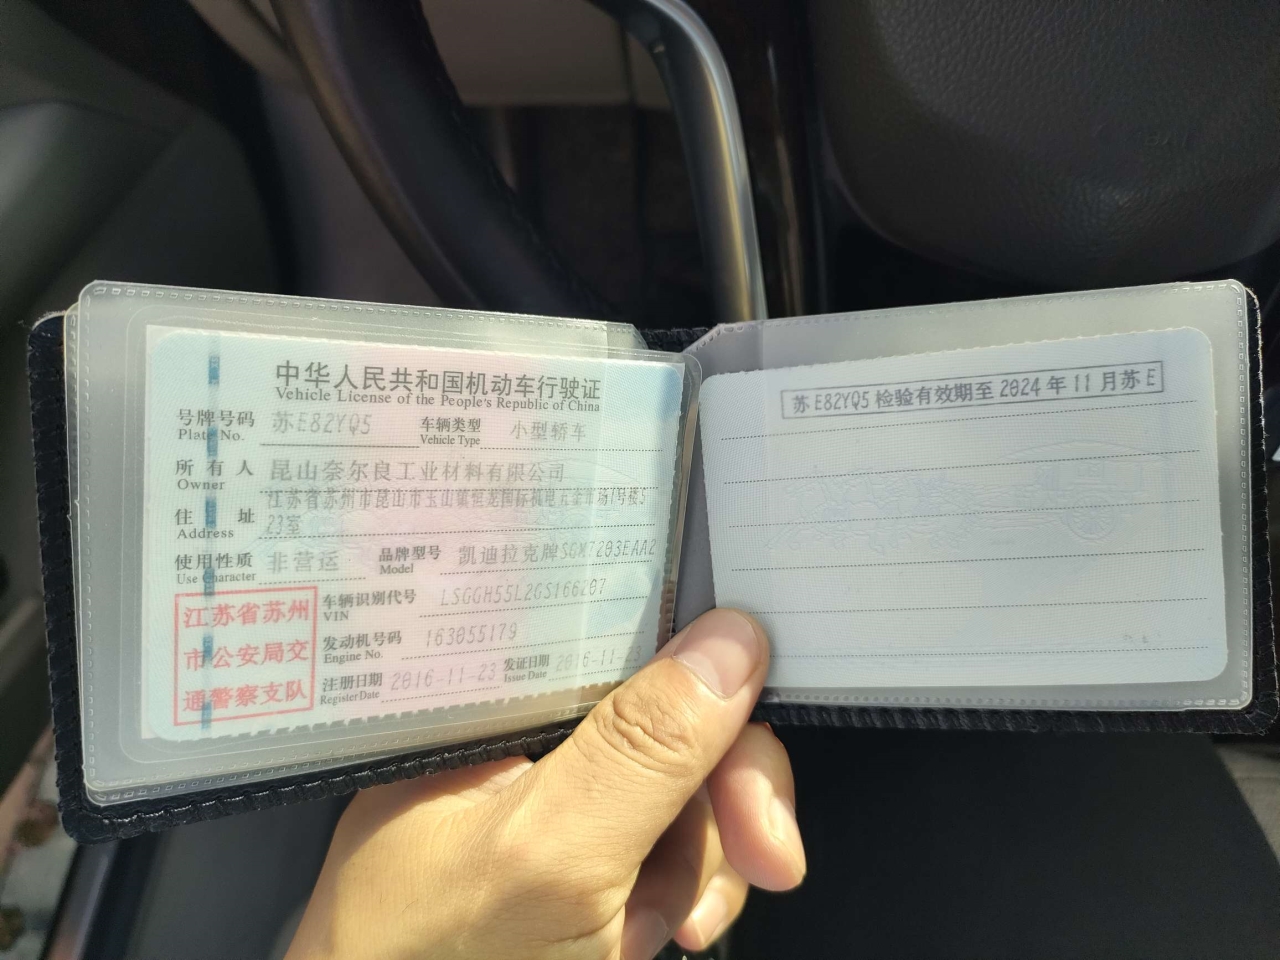 中华人民共和国机动车行驶证
Vehicle License of the People's Republic of China
号牌号码 苏E82YQ5 车辆类型 小型轿车
Plate No. Vehicle Type
所有人 昆山奈尔良工业材料有限公司
Owner
江苏省苏州市昆山市玉山镇恒龙国际机电五金市场1号楼5
住址 23室
Address
使用性质 非营运 品牌型号 凯迪拉克牌SGM7203EAA2
Use Character Model
江苏省苏州
市公安局交
通警察支队
车辆识别代号 LSGGH55L2GS166207
VIN
发动机号码 163055179
Engine No.
注册日期 2016-11-23 发证日期 2016-11-23
Register Date Issue Date
苏E82YQ5检验有效期至2024年11月苏E